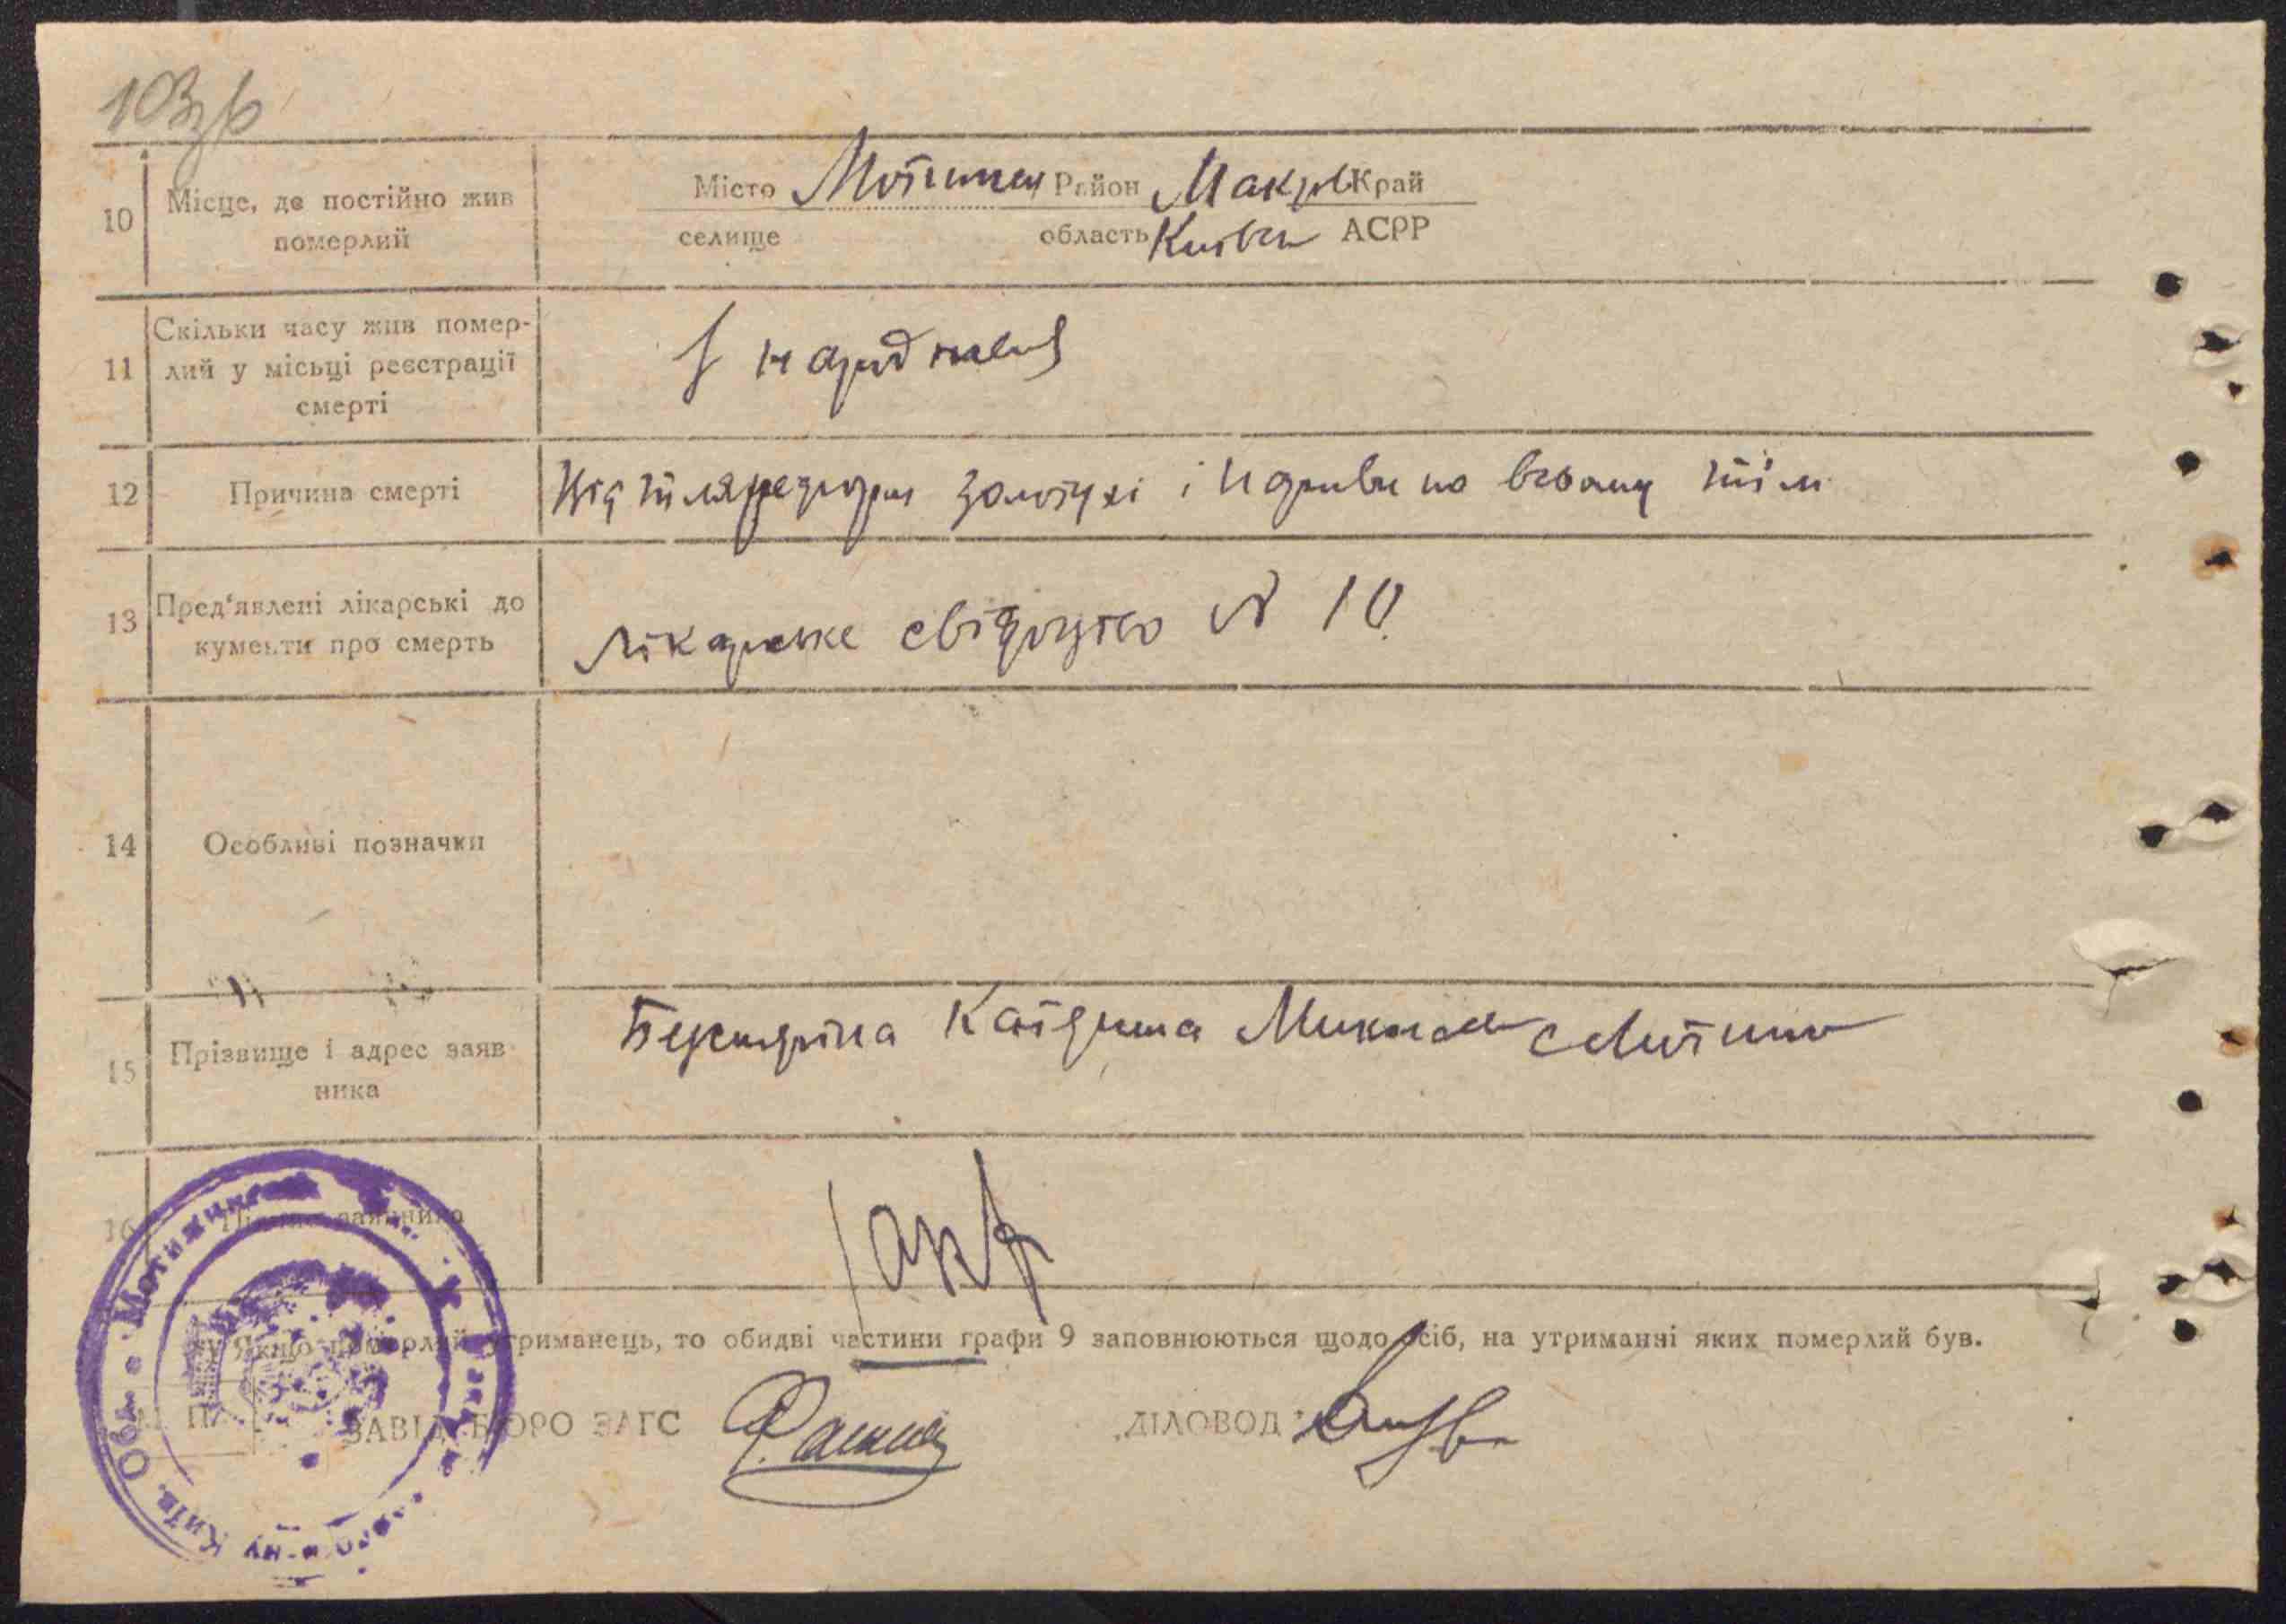 103зв
10 Місце, де постійно жив померлий
Місто Мотижин Район Макар Край
селище область Київськ АСРР
11 Скільки часу жив помер-
лий у місьці реєстрації
смерті
З народження
12 Причина смерті
Від золотухі і нариви по всьому тілі
13 Пред'явлені лікарські до
кументи про смерть
Лікарське свідоцтво N 10
14 Особливі позначки
15 Прізвище і адрес заяв
ника
Катерина Микол с Мотижин
16 Підпис заявника
Якщо померлий утриманець, то обидві частини графи 9 заповнюються щодо осіб, на утриманні яких померлий був.
М. П. ЗАВІД. БЮРО ЗАГС ДІЛОВОД
Київ. Обл. Мотижинська